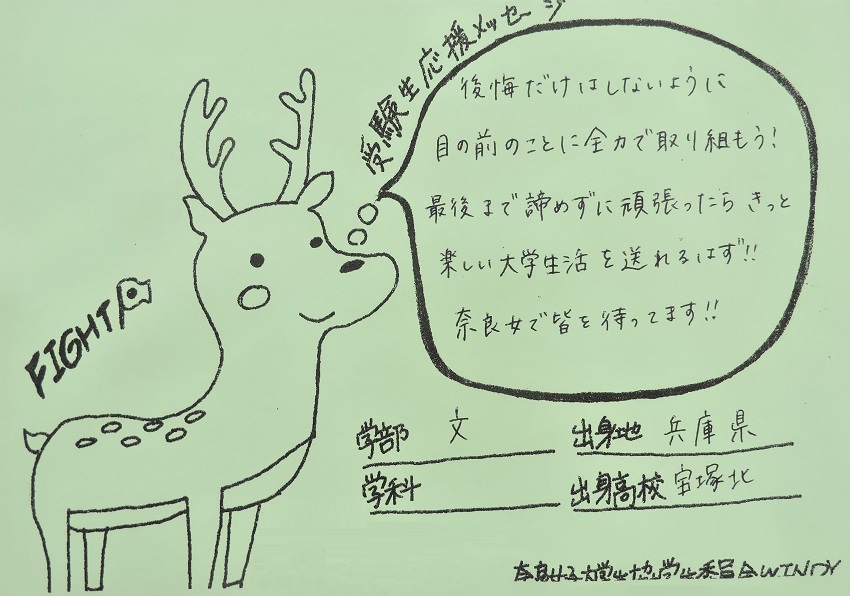 受験生応援メッセージ
後悔だけはしないように
目の前のことに全力で取り組もう!
最後まで諦めずに頑張ったら きっと
楽しい大学生活を送れるはず!!
奈良女で皆を待ってます!!
FIGHT
学部 文 出身地 兵庫県
学科 出身高校 宝塚北
奈良女子大学生協学生委員会WINDY